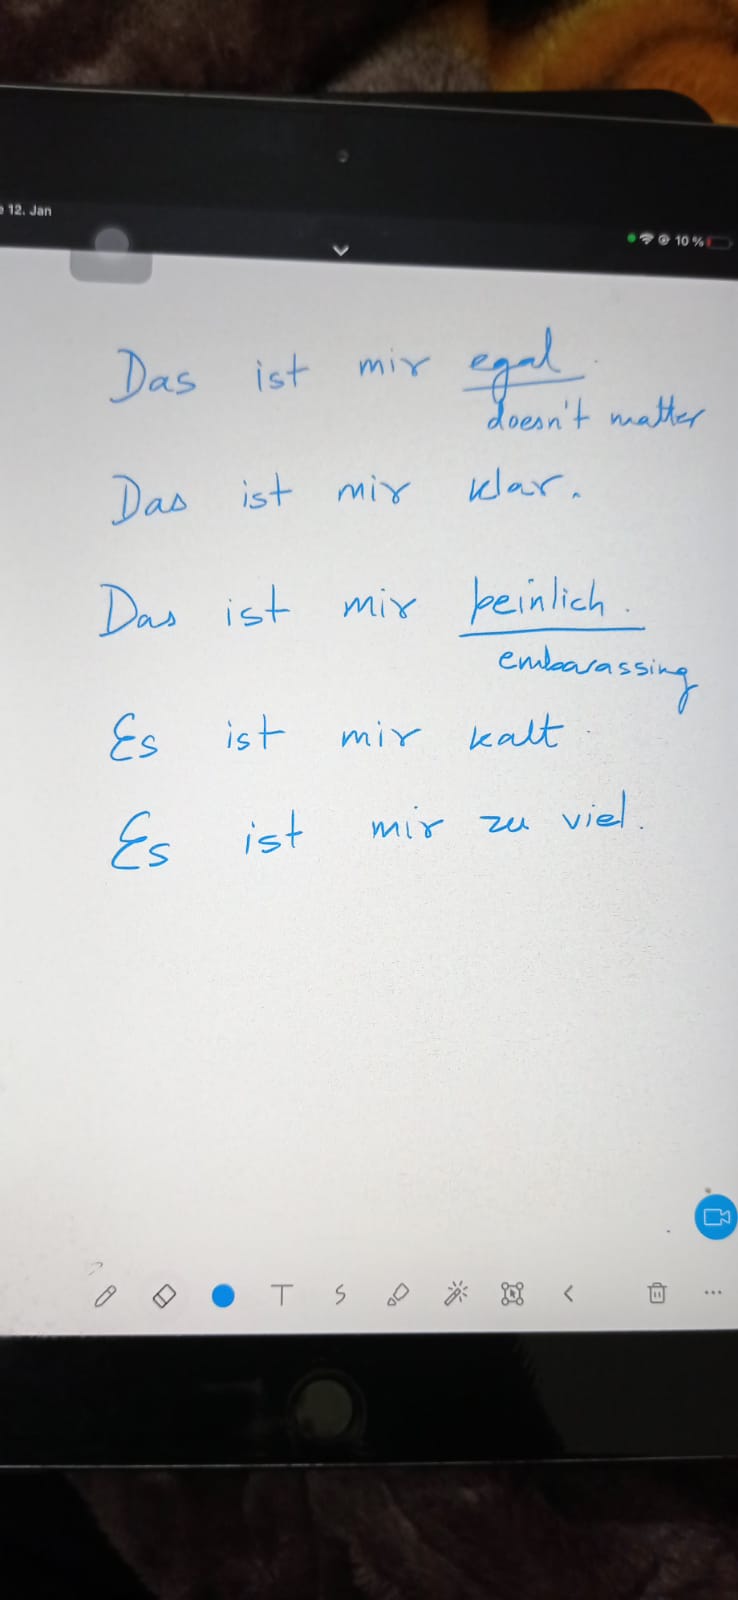 12. Jan
10 %
Das ist mir egal.
doesn't matter
Das ist mir klar.
Das ist mir peinlich.
embarassing
Es ist mir kalt.
Es ist mir zu viel.
T